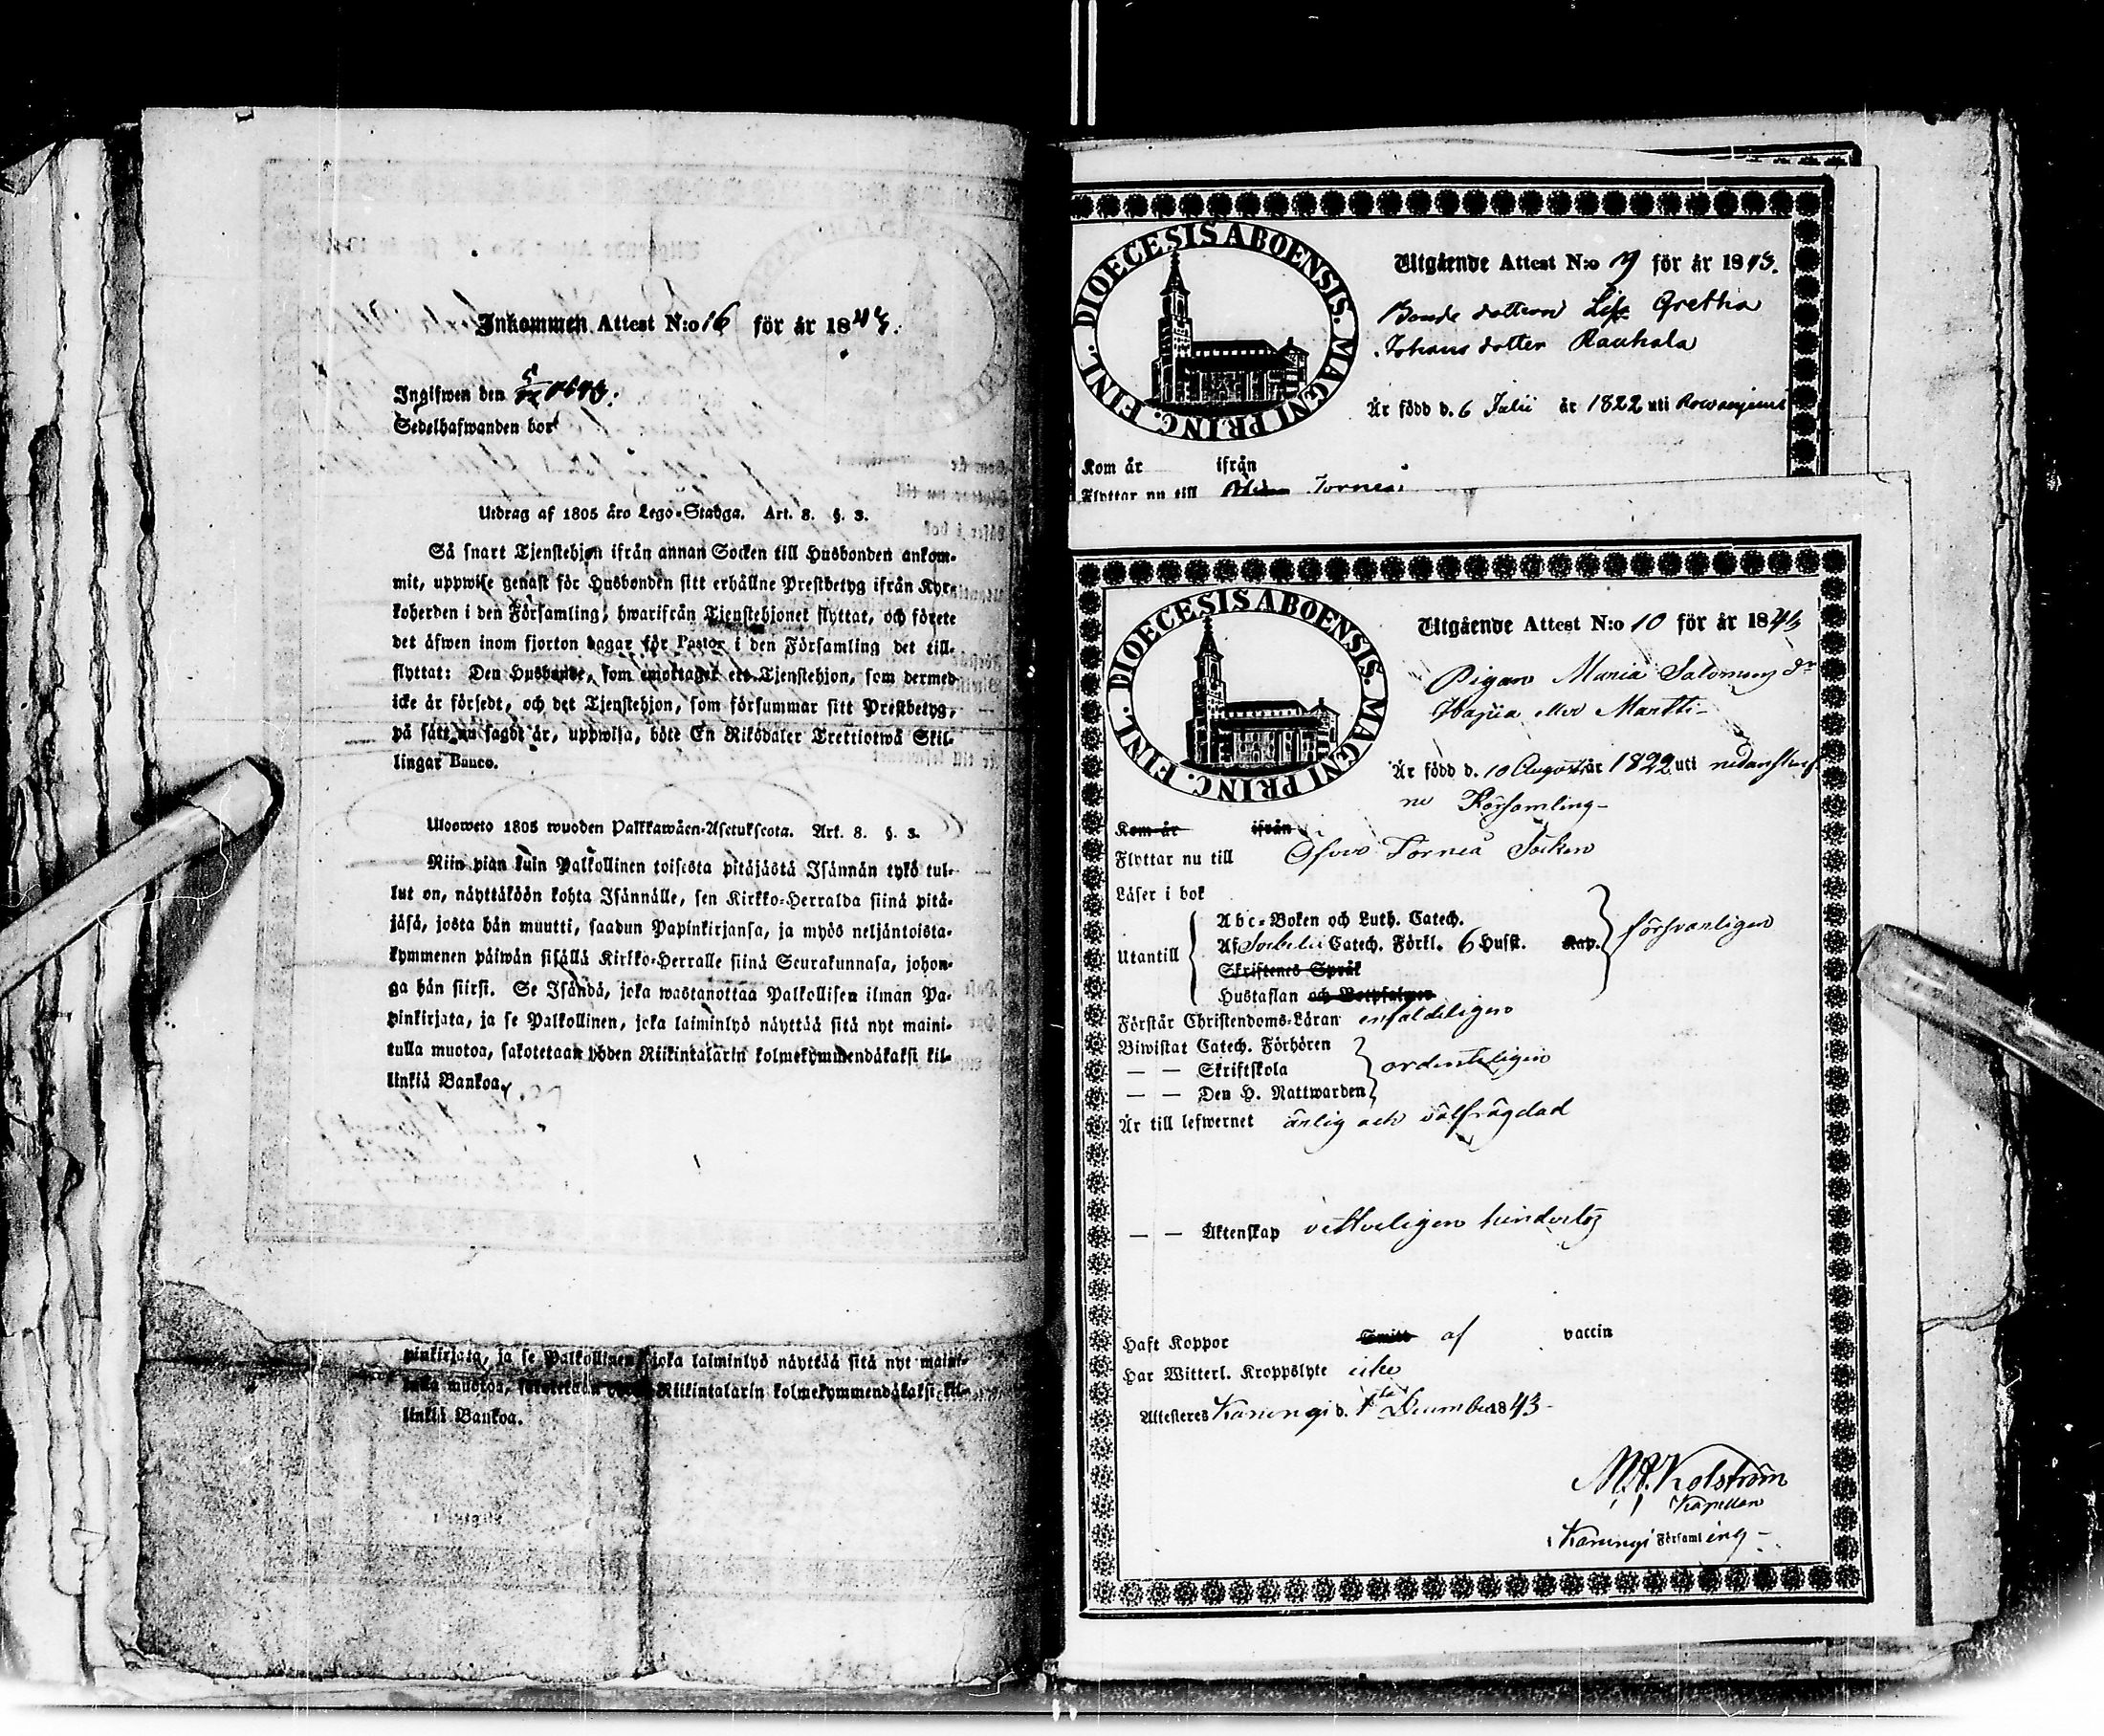 Inkommen Attest N:o 16 för år 1843.
Ingifwen den
Sedelhafwanden bor
Utdrag af 1805 års Lego-Stadga. Art. 8. §. 3.
Så snart Tjenstehjon ifrån annan Socken till Husbonden ankom-
mit, uppwise genast för Husbonden sitt erhållne Prestbetyg ifrån Kyr-
koherden i den Församling, hwarifrån Tjenstehjonet flyttat, och förete
det äfwen inom fjorton dagar för Pastor i den Församling det till-
flyttat: Den Husbonde, som emottager ett Tjenstehjon, som dermed
icke är försedt, och det Tjenstehjon, som försummar sitt Prestbetyg,
på sätt nu sagdt är, uppwisa, böte En Riksdaler Trettiotwå Skil-
lingar Banco.
Ulosweto 1805 wuoden Palkkawäen-Asetuksesta. Art. 8. §. 3.
Niin pian kuin Palkollinen toisesta pitäjästä Isännän tykö tul-
lut on, näyttäköön kohta Isännälle, sen Kirkko-Herralda siinä pitä-
jäsä, josta hän muutti, saadun Papinkirjansa, ja myös neljäntoista-
kymmenen päiwän sisällä Kirkko-Herralle siinä Seurakunnasa, johon-
ga hän siirsi. Se Isändä, joka wastanottaa Palkollisen ilman Pa-
pinkirjata, ja se Palkollinen, joka laiminlyö näyttää sitä nyt maini-
tulla muotoa, sakotetaan yhden Riikintalarin kolmekymmendäkaksi kil-
linkiä Bankoa.
pinkirjata, ja se Palkollinen, joka laiminlyö näyttää sitä nyt maini-
tulla muotoa, sakotetaan Riikintalarin kolmekymmendäkaksi kil-
linkiä Bankoa.
DIOECESIS ABOENSIS. MAGNI PRINC. FINL.
Utgående Attest N:o för år 1843.
Bonde dottren Lisa Gretha
Johans dotter Rauhala
Är född d. 6 Julii år 1822 uti
Kom år ifrån
Flyttar nu till Torneå
DIOECESIS ABOENSIS. MAGNI PRINC. FINL.
Utgående Attest N:o 10 för år 1843
Pigan Maria Salomons dr
eller Martti
Är född d. 10 August år 1822 uti nedanskref
ne Församling
Kom år ifrån
Flyttar nu till Öfver Torneå Socken
Läser i bok
Abc-Boken och Luth. Catech.
Utantill Af Svebelii Catech. Förkl. 6 Husst. Kap. försvarligen
Skriftenes Språk
Hustaflan och Botpsalmer
Förstår Christendoms-Läran enfaldeligen
Biwistat Catech. Förhören
— — Skriftskola ordenteligen
— — Den H. Nattwarden
Är till lefwernet ärlig och välfrägdad
— — Äktenskap vetterligen hinderlös
Haft Koppor Smitt af vaccin
Har Witterl. Kroppslyte icke
Attesteres Karungi d. 1sta December 1843
Kolström
Kapellan
Karungi Församling